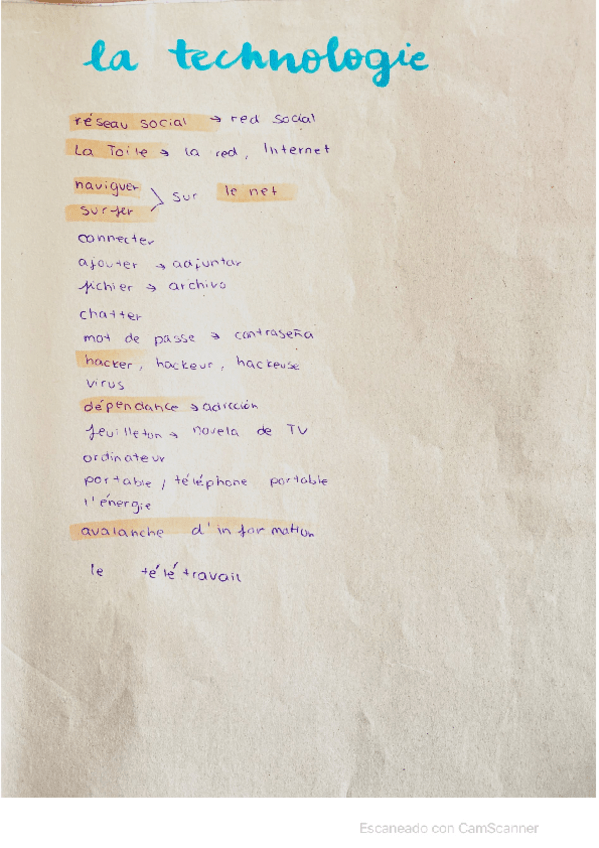 la technologie
réseau social → red social
La Toile → la red, Internet
naviguer
surfer
sur le net
connecter
ajouter → adjuntar
fichier → archivo
chatter
mot de passe → contraseña
hacker, hackeur, hackeuse
virus
dépendance → adicción
feuilleton → novela de TV
ordinateur
portable, téléphone portable
l'énergie
avalanche d'information
le télétravail
Escaneado con CamScanner